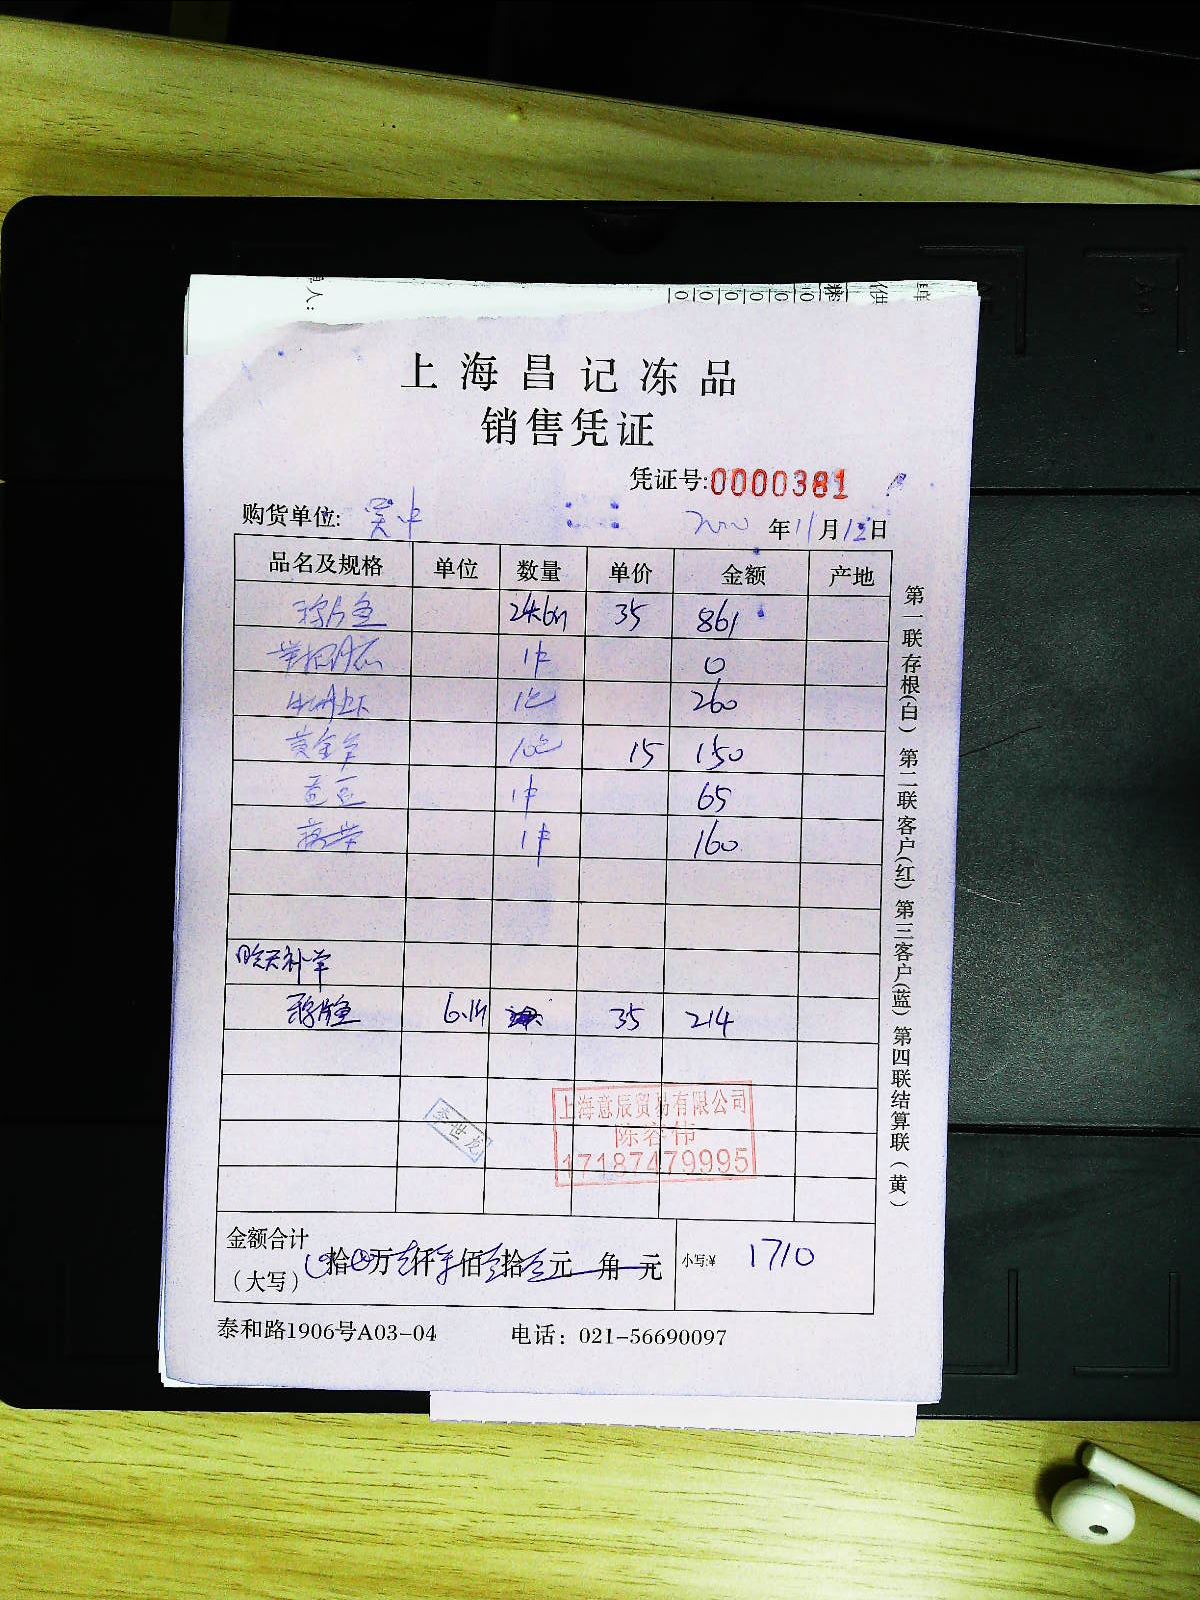 上海昌记冻品
销售凭证
凭证号:0000381
购货单位: 吴中 年11月12日
品名及规格 单位 数量 单价 金额 产地
24.6斤 35 861
1件 0
1包 260
黄金 10包 15 150
蚕豆 1件 65
1件 160
昨天补单
6.1斤 35 214
李世龙
上海意辰贸易有限公司
陈容伟
17187479995
金额合计
(大写) 拾 万 仟 佰 拾 元 角 元 小写:¥ 1710
泰和路1906号A03-04 电话：021-56690097
第一联存根(白) 第二联客户(红) 第三客户(蓝) 第四联结算联(黄)